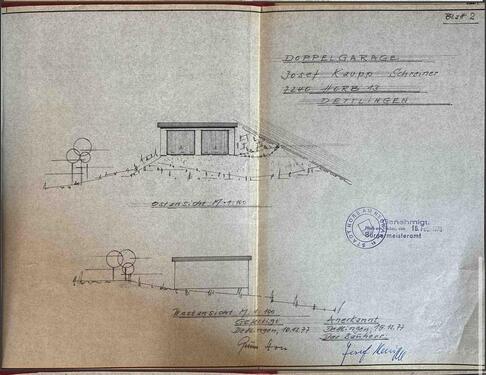 Blatt 2
DOPPELGARAGE
Josef Kaupp Schreiner
7240 HORB 13
DETTLINGEN
Ostansicht M. 1:100
Genehmigt
Bürgermeisteramt
Westansicht M. 1:100
Gefertigt
Dettlingen, 10.12.77
Anerkannt
Dettlingen, 12.77
Der Bauherr
Josef